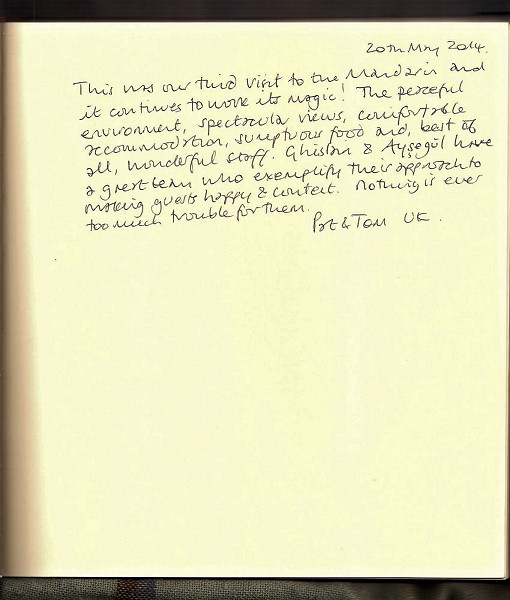 20th May 2014.
This was our third visit to the Mandarin and
it continues to work its magic! The peaceful
environment, spectacular views, comfortable
accommodation, sumptuous food and, best of
all, wonderful staff. Ghislan & Ayşegül have
a great team who exemplify their approach to
making guests happy & content. Nothing is ever
too much trouble for them.
Pat & Tom UK.